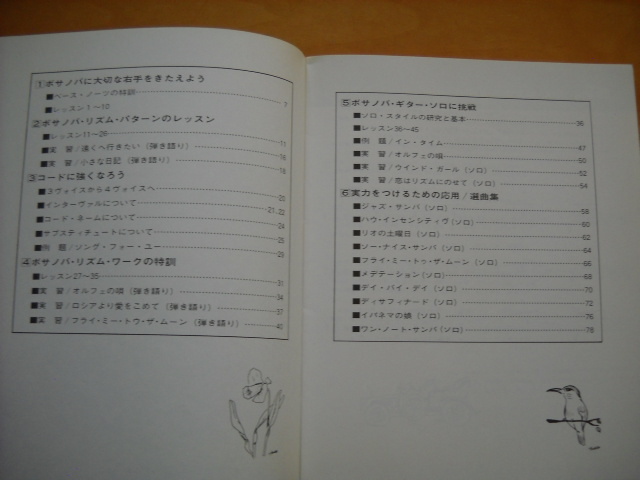 1 ボサノバに大切な右手をきたえよう
■ベース・ノーツの特訓 7
■レッスン1〜10
2 ボサノバ・リズム・パターンのレッスン
■レッスン11〜26 11
■実 習/遠くへ行きたい(弾き語り) 16
■実 習/小さな日記(弾き語り) 18
3 コードに強くなろう
■3ヴォイスから4ヴォイスへ 20
■インターヴァルについて 21, 22
■コード・ネームについて 24
■サブスティチュートについて 25
■例 題/ソング・フォー・ユー 29
4 ボサノバ・リズム・ワークの特訓
■レッスン27〜35 31
■実 習/オルフェの唄(弾き語り) 34
■実 習/ロシアより愛をこめて(弾き語り) 37
■実 習/フライ・ミー・トゥ・ザ・ムーン(弾き語り) 40
5 ボサノバ・ギター・ソロに挑戦
■ソロ・スタイルの研究と基本 36
■レッスン36〜45
■例 題/イン・タイム 47
■実 習/オルフェの唄 50
■実 習/ウインド・ガール(ソロ) 52
■実 習/恋はリズムにのせて(ソロ) 54
6 実力をつけるための応用/選曲集
■ジャズ・サンバ(ソロ) 58
■ハウ・インセンシティヴ(ソロ) 60
■リオの土曜日(ソロ) 62
■ソー・ナイス・サンバ(ソロ) 64
■フライ・ミー・トゥ・ザ・ムーン(ソロ) 66
■メデテーション(ソロ) 68
■デイ・バイ・デイ(ソロ) 70
■ディサフィナード(ソロ) 72
■イパネマの娘(ソロ) 76
■ワン・ノート・サンバ(ソロ) 78